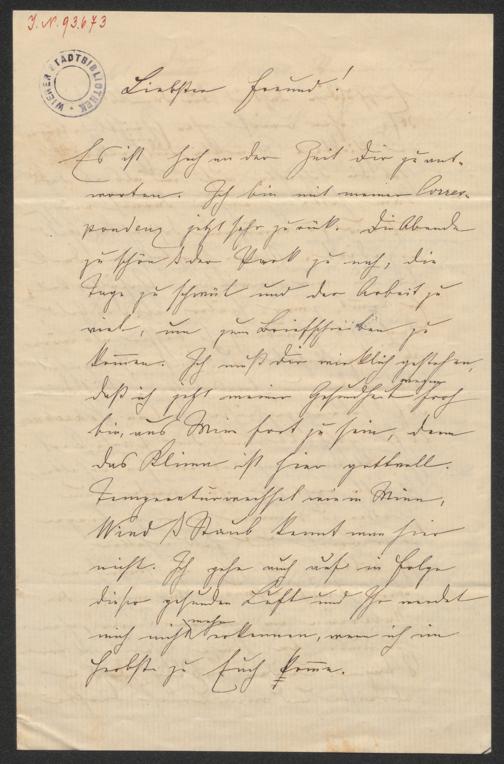 J. N. 93.673
WIENER STADTBIBLIOTHEK
Liebster Freund!
Es ist hoch an der Zeit Dir zu ant-
worten. Ich bin mit meiner Corres-
pondenz jetzt sehr zurück. Die Abende
zu schön & der Park zu nah, die
Tage zu schwül und der Arbeit zu
viel, um zum Briefschreiben zu
kommen. Ich muß Dir wirklich gestehen,
daß ich jetzt meiner Gesundheit wegen froh
bin, aus Wien fort zu sein, denn
das Klima ist hier gottvoll.
Temperaturwechsel wie in Wien,
Wind & Staub kennt man hier
nicht. Ich gehe auch auf in Folge
dieser gesunden Luft und Ihr werdet
mich nicht mehr erkennen, wenn ich im
Herbst zu Euch komme.